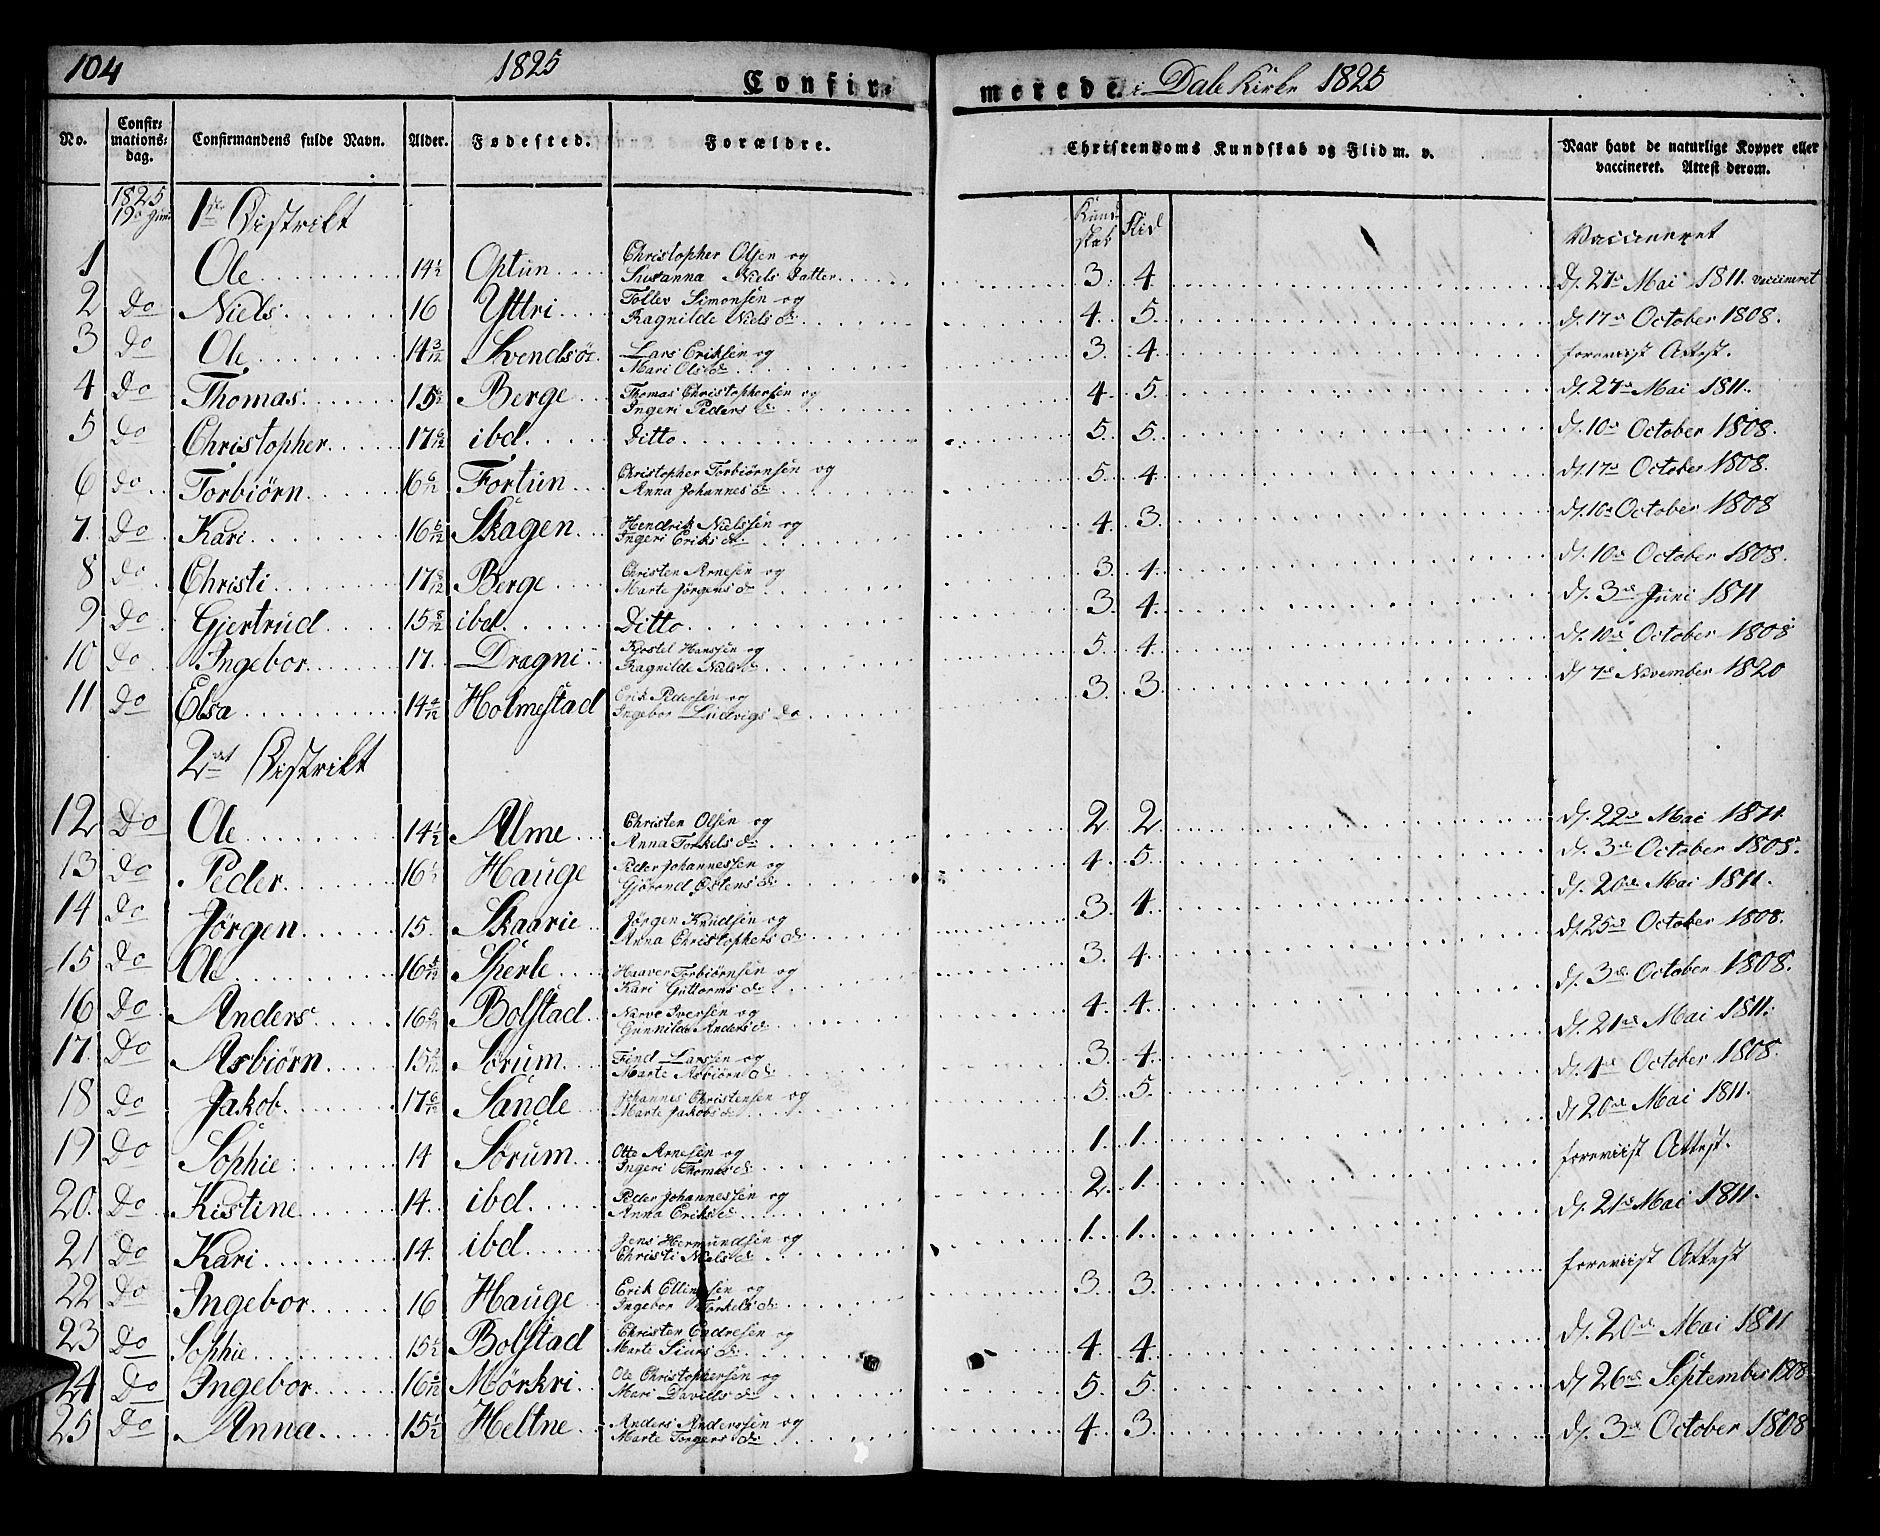 104 1825 Confir- merede i Dale Kirke 1825
No. Confir- mations- dag. Confirmandens fulde Navn. Alder. Fødested. Forældre. Christendoms Kundskab og Flid m. v. Naar havt de naturlige Kopper eller vaccineret. Attest derom.
1825 19de Juni 1ste Distrikt Kund- skab Flid Vaccineret
1 Ole 14 1/2 Optun Christopher Olsen og Susanna Niels Datter 3 4 d. 27de Mai 1811 vaccineret
2 Do Niels 16 Yttri Tollev Simonsen og Ragnilde Niels dr 4 5 d. 17de October 1808.
3 Do Ole 14 3/12 Svendsøe Lars Eriksen og Mari Ols dr 3 4 foreviist Attest.
4 Do Thomas 15 Berge Thomas Christophersen og Ingeri Peders dr 4 5 d. 27de Mai 1811.
5 Do Christopher 17 6/12 ibd Ditto 5 5 d. 10de October 1808.
6 Do Torbiørn 16 6/12 Fortun Christopher Torbiørnsen og Anna Johannes dr 5 4 d. 17de October 1808.
7 Do Kari 16 6/12 Skagen Hendrik Nielssen og Ingeri Eriks dr 4 3 d. 10de October 1808
8 Do Christi 17 8/12 Berge Christen Arnesen og Marte Jørgens dr 3 4 d. 10de October 1808.
9 Do Gjertrud 15 8/12 ibd Ditto 3 4 d. 3de Juni 1811
10 Do Ingebor 17 Drægni Kjostel Hanssen og Ragnilde Niels dr 5 4 d. 10de October 1808
11 Do Elsa 14 Holmestad Erik Pedersen og Ingebor Ludvigs Do 3 3 d. 7de November 1820
2det Distrikt
12 Do Ole 14 1/2 Alme Christen Olsen og Anna Torkels dr 2 2 d. 22de Mai 1811
13 Do Peder 16 Hauge Peder Johannessen og Gjørend Østens dr 4 5 d. 3de October 1808.
14 Do Jørgen 15 Skaarie Jørgen Knudsen og Anna Christophers dr 3 4 d. 20de Mai 1811.
15 Do Ole 16 Sperle Haaver Torbiørnsen og Kari Guttorms dr 3 4 d. 25de October 1808.
16 Do Anders 16 Bolstad Narve Iversen og Gunnilde Anders dr 4 4 d. 3de October 1808.
17 Do Asbiørn 15 Sørum Find Larssen og Marte Asbiørn dr 3 4 d. 21de Mai 1811.
18 Do Jakob 17 6/12 Sande Johannes Christensen og Marte Jakobs dr 5 5 d. 4de October 1808.
19 Do Sophie 14 Sørum Otte Arnesen og Ingeri Thomas dr 1 1 d. 20de Mai 1811.
20 Do Kistine 14 ibd Peder Johannessen og Anna Eriks dr 2 1 foreviist Attest.
21 Do Kari 14 ibd Jens Hermundsen og Christi Niels dr 1 1 d. 21de Mai 1811.
22 Do Ingebor 16 Hauge Erik Ellingsen og Ingebor Torkels dr 3 3 foreviist Attest
23 Do Sophie 15 1/2 Bolstad Christen Endresen og Marte Siurs dr 4 4 d. 20de Mai 1811
24 Do Ingebor 16 Mörkri Ole Christophersen og Mari Davids dr 5 5 d. 26de September 1808
25 Do Anna 15 1/2 Heltne Anders Anderssen og Marte Torgers dr 4 3 d. 3de October 1808